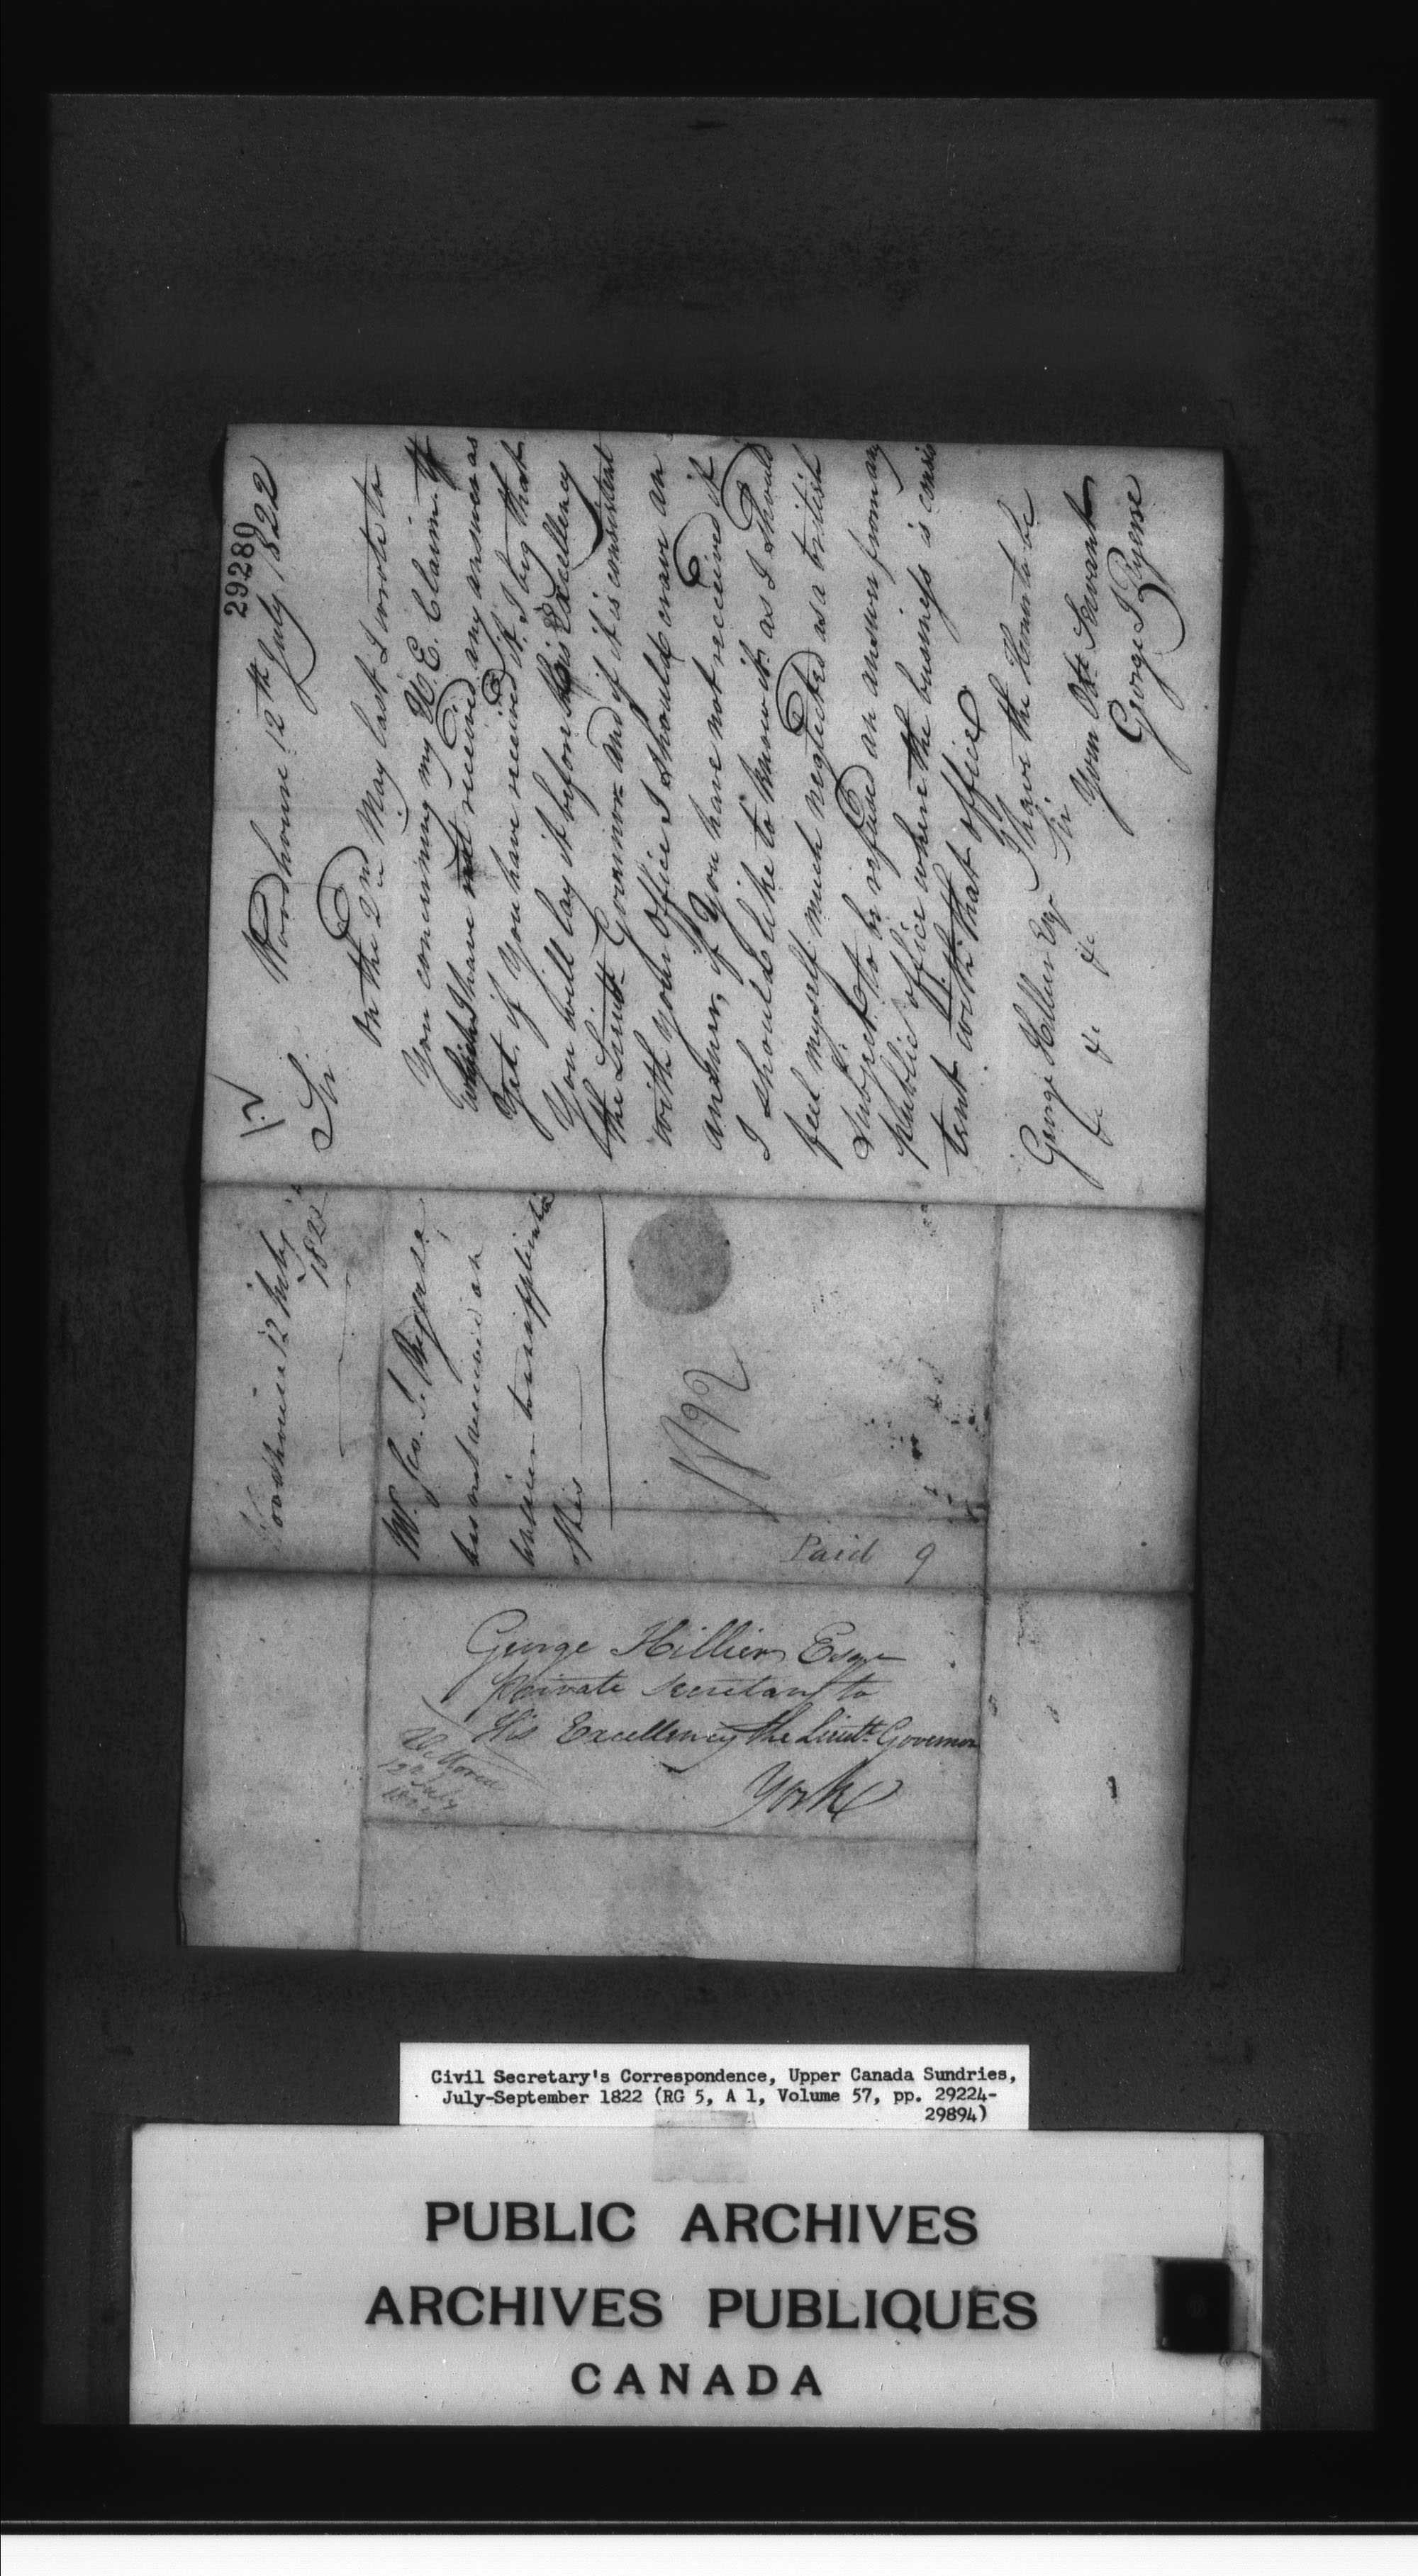 29280
Woodhouse 12th July 1822
Sir
On the 2nd May last I wrote to
You concerning my U. E. Claim to
which I have not received any answer as
Yet, if You have received it. I beg that
You will lay it before His Excellency
the Lieut. Governor and if it is consistent
with your Office I should crave an
answer, if You have not received it
I should like to know it as I should
feel myself much neglected as a british
Subject to be refused an answer from any
public office where the business is consis
tent with that office
I have the Honor to be
Sir
Your Obt. Servant
George J Ryerse
George Hillier Esqr
&c &c &c
Woodhouse 12 July
1822
Mr. Geo. J. Ryerse
has not received an
answer to an application
of his
Paid 9
George Hillier Esqr
Private Secretary to
His Excellency the Lieutt. Governor
York
Vittoria
12th July
1822
Civil Secretary's Correspondence, Upper Canada Sundries,
July-September 1822 (RG 5, A 1, Volume 57, pp. 29224-
29894)
PUBLIC ARCHIVES
ARCHIVES PUBLIQUES
CANADA